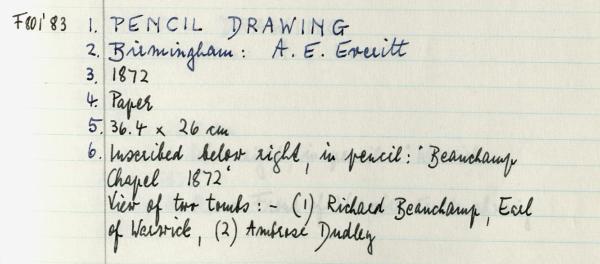 F801'83 1. PENCIL DRAWING
2. Birmingham: A. E. Everitt
3. 1872
4. Paper
5. 36.4 x 26 cm
6. Inscribed below right, in pencil: 'Beauchamp
Chapel 1872'
View of two tombs:- (1) Richard Beauchamp, Earl
of Warwick, (2) Ambrose Dudley